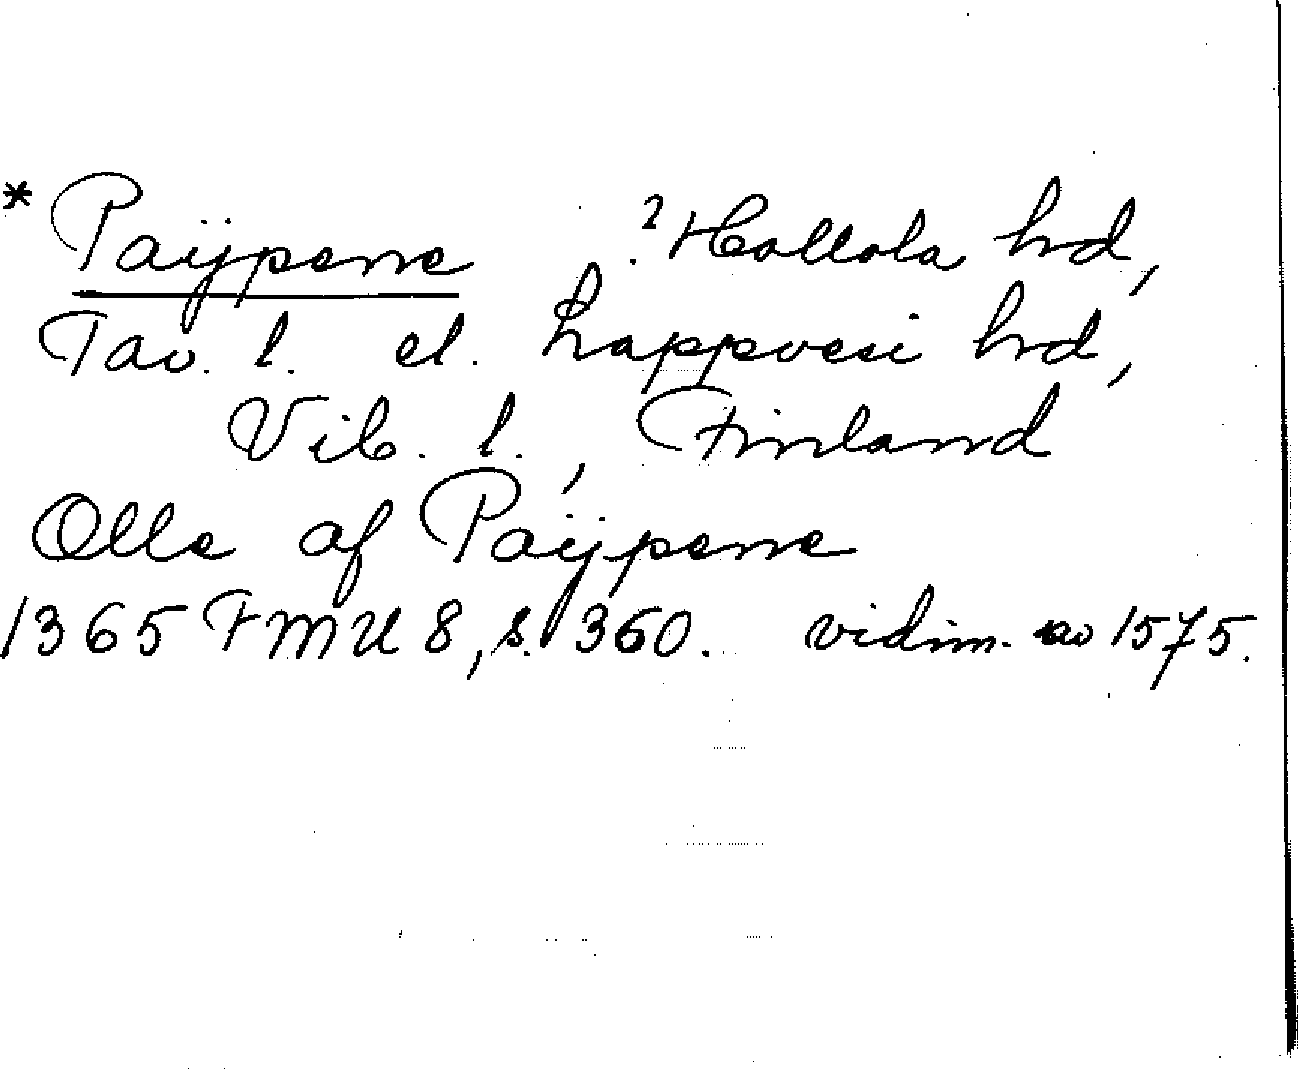 * Paÿpene ? Hollola hd,
Tav. l. el. Lappvesi hd,
Vib. l., Finland
Olle af Paÿpene
1365 FMU 8, s. 360. vidim. av 1575.